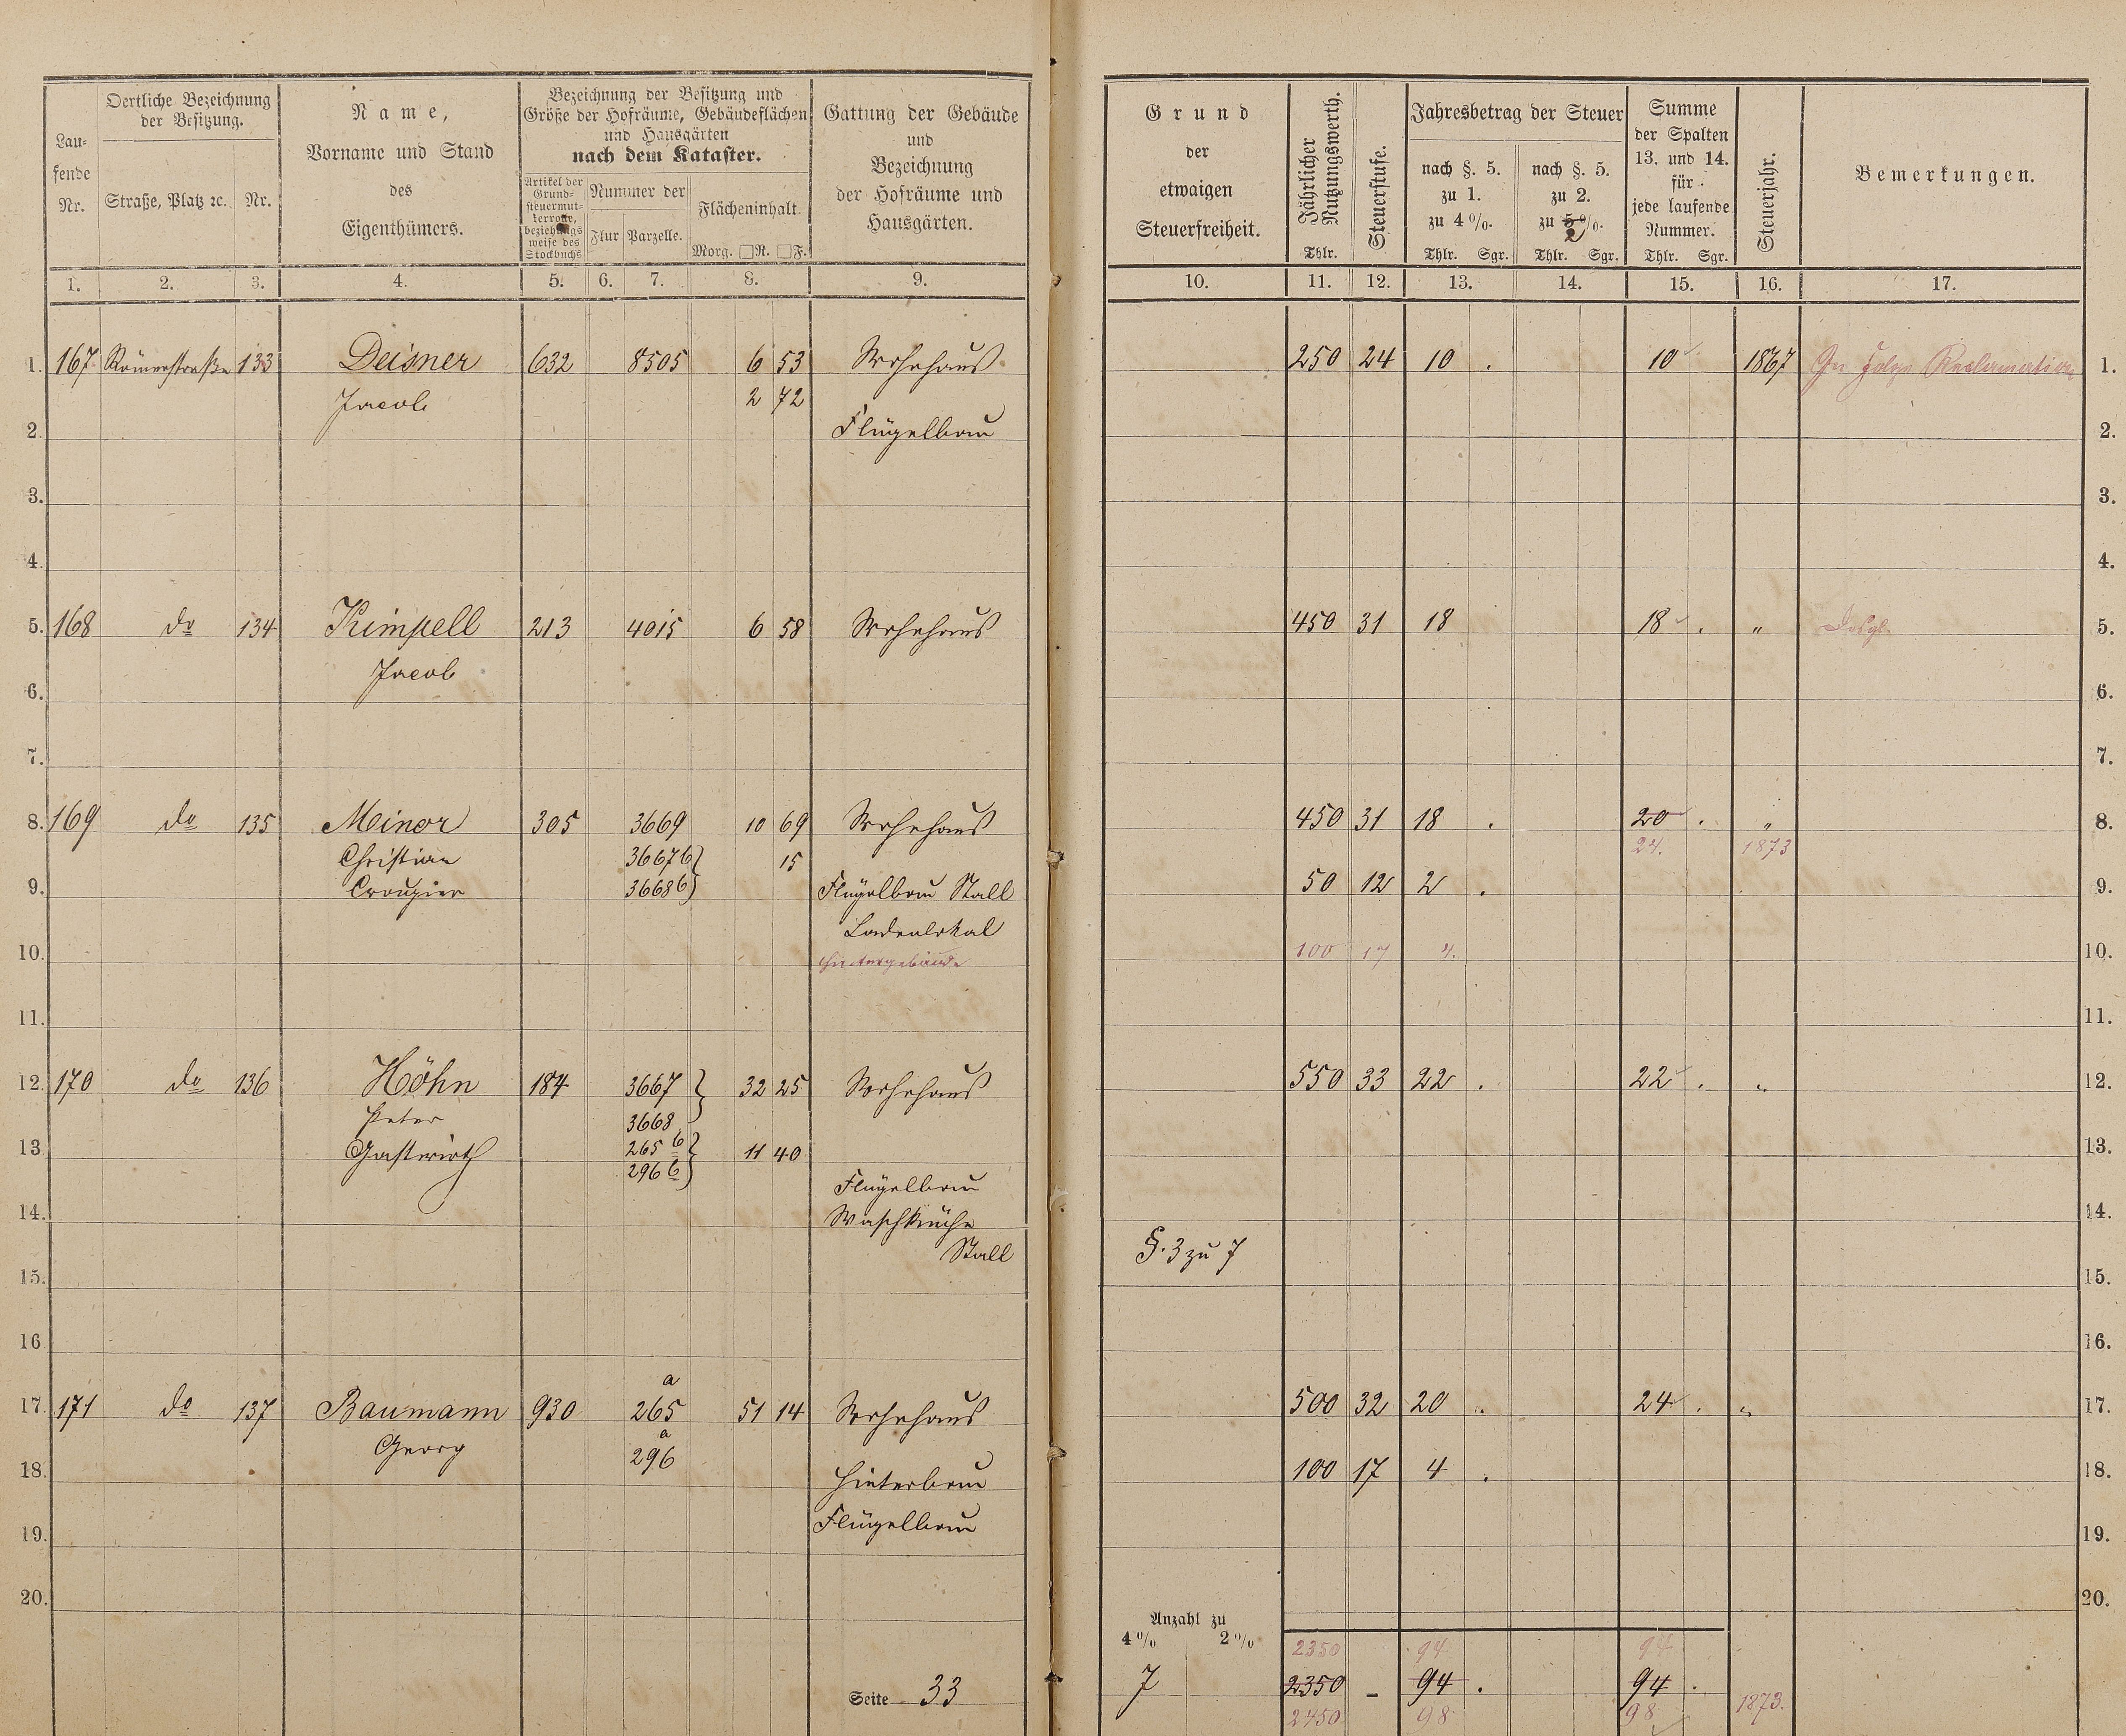 Lau-
fende
Nr.
Oertliche Bezeichnung
der Besitzung.
Straße, Platz ꝛc.
Nr.
Name,
Vorname und Stand
des
Eigenthümers.
Bezeichnung der Besitzung und
Größe der Hofräume, Gebäudeflächen
und Hausgärten
nach dem Kataster.
Artikel der
Grund-
steuermut-
terrolle,
beziehungs
weise des
Stockbuchs
Nummer der
Flur Parzelle.
Flächeninhalt.
Morg. □R. □F.
Gattung der Gebäude
und
Bezeichnung
der Hofräume und
Hausgärten.
1. 2. 3. 4. 5. 6. 7. 8. 9.
1. 167 Römerstraße 133 Deisner 632 8505 6 53 Wohnhaus
Jacob 2 72
2. Flügelbau
3.
4.
5. 168 do 134 Kimpell 213 4015 6 58 Wohnhaus
Jacob
6.
7.
8. 169 do 135 Minor 305 3669 10 69 Wohnhaus
Christian 3667b 15
9. Croupier 3668b Flügelbau Stall
Ladenlokal
10. Hintergebäude
11.
12. 170 do 136 Höhn 184 3667 32 25 Wohnhaus
Peter 3668
13. Gastwirth 265 b 11 40
296 b Flügelbau
14. Waschküche
Stall
15.
16.
17. 171 do 137 Baumann 930 265 a 51 14 Wohnhaus
Georg 296 a
18. Hinterbau
19. Flügelbau
20.
Seite 33
Grund
der
etwaigen
Steuerfreiheit.
Jährlicher
Nutzungswerth.
Thlr.
Steuerstufe.
Jahresbetrag der Steuer
nach §. 5.
zu 1.
zu 4%.
Thlr. Sgr.
nach §. 5.
zu 2.
zu 5%.
2
Thlr. Sgr.
Summe
der Spalten
13. und 14.
für
jede laufende
Nummer.
Thlr. Sgr.
Steuerjahr.
Bemerkungen.
10. 11. 12. 13. 14. 15. 16. 17.
250 24 10 . 10 1867 In Folge Reclamation 1.
2.
3.
4.
450 31 18 18 . " Desgl. 5.
6.
7.
450 31 18 . 20 . " 8.
24. 1873
50 12 2 . 9.
100 17 4. 10.
11.
550 33 22 . 22 . " 12.
13.
14.
§. 3 zu 7
15.
16.
500 32 20 . 24 . " 17.
100 17 4 . 18.
19.
20.
Anzahl zu
4% 2%
2350 94 94
7 2350 - 94 . 94 .
2450 98 98 1873.